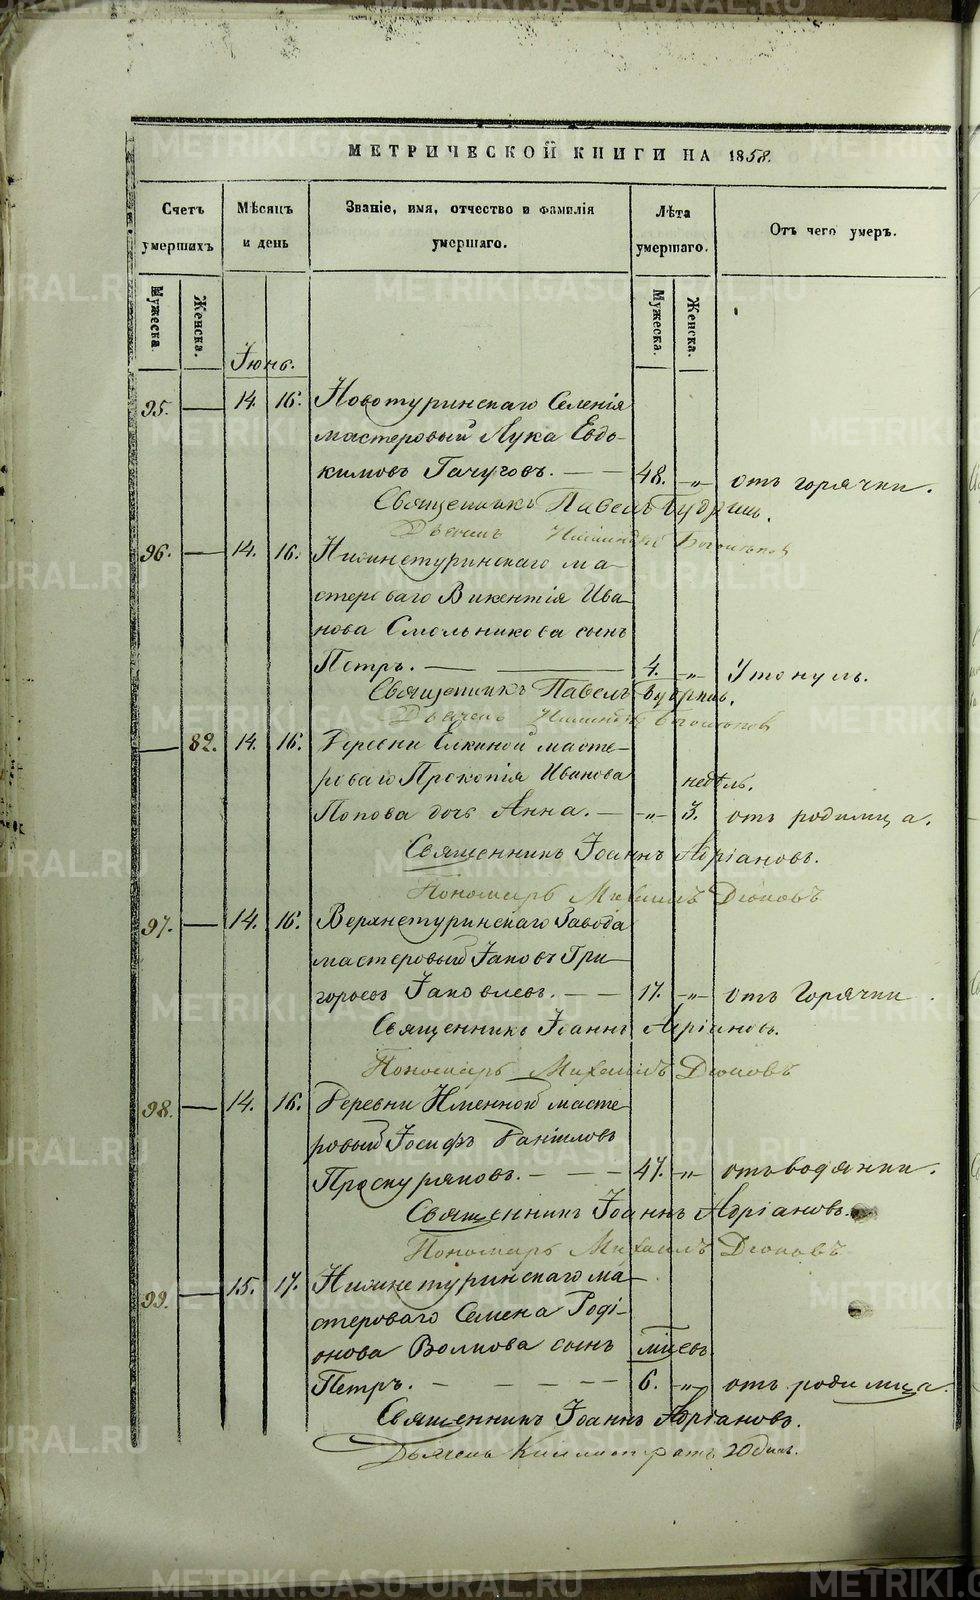 METRIKI.GASO-URAL.RU
МЕТРИЧЕСКОЙ КНИГИ НА 1858.
Счетъ умершихъ
Мѣсяцъ и день
Званіе, имя, отчество и фамилія умершаго.
Лѣта умершаго.
Отъ чего умеръ.
Мужеска.
Женска.
Мужеска.
Женска.
Іюнь.
95. — 14. 16. Новотуринскаго Селенія
мастеровый Лука Евдо-
кимовъ Гачуговъ. — — 48. „ отъ горячки.
Священникъ Павелъ Будринъ.
Дьячекъ
96. — 14. 16. Нижнетуринскаго ма-
стероваго Викентія Ива-
нова Смольникова сынъ
Петръ. — — 4. „ Утонулъ.
Священникъ Павелъ Будринъ.
Дьячекъ
— 82. 14. 16. Деревни Елкиной масте-
роваго Прокопія Иванова недѣль.
Попова дочь Анна. — „ 3. отъ родимца.
Священникъ Іоаннъ Адріановъ.
Пономарь Михаилъ
97. — 14. 16. Верхнетуринскаго Завода
мастеровый Іаковъ Гри-
горьевъ Іаковлевъ. — — 17. „ отъ Горячки.
Священникъ Іоаннъ Адріановъ.
Пономарь Михаилъ
98. — 14. 16. Деревни Именной масте-
ровый Іосифъ Даніиловъ
Проскуряковъ. — — — 47. „ отъ водянки.
Священникъ Іоаннъ Адріановъ.
Пономарь Михаилъ
99. — 15. 17. Нижнетуринскаго ма-
стероваго Семена Роді-
онова Волкова сынъ мѣсец.
Петръ. — — — — 6. „ отъ родимца.
Священникъ Іоаннъ Адріановъ.
Дьячекъ Каллистратъ